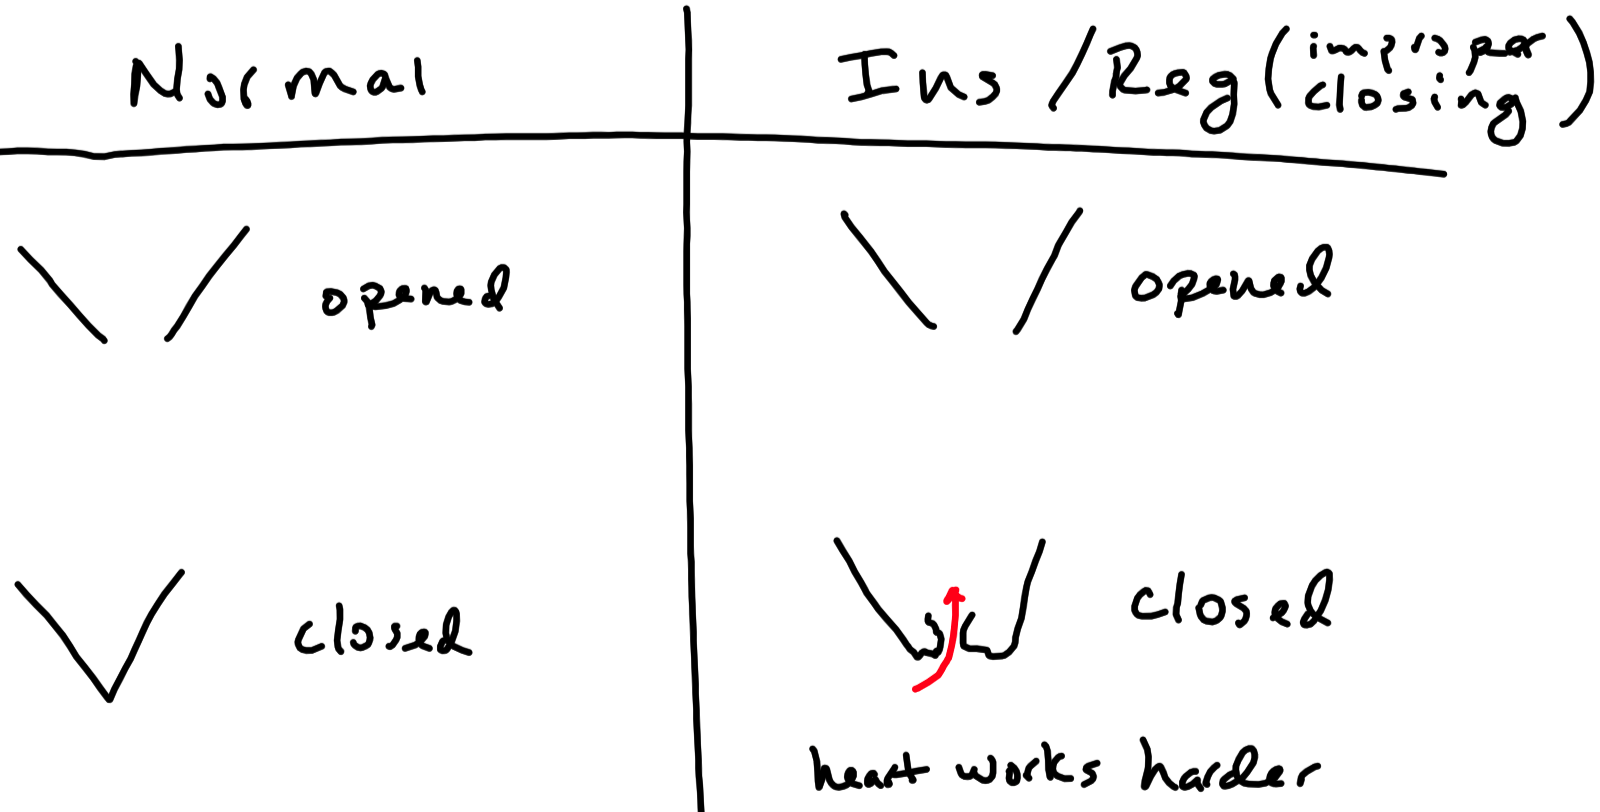 Normal
Ins/Reg (improper
closing)
opened
opened
closed
closed
heart works harder